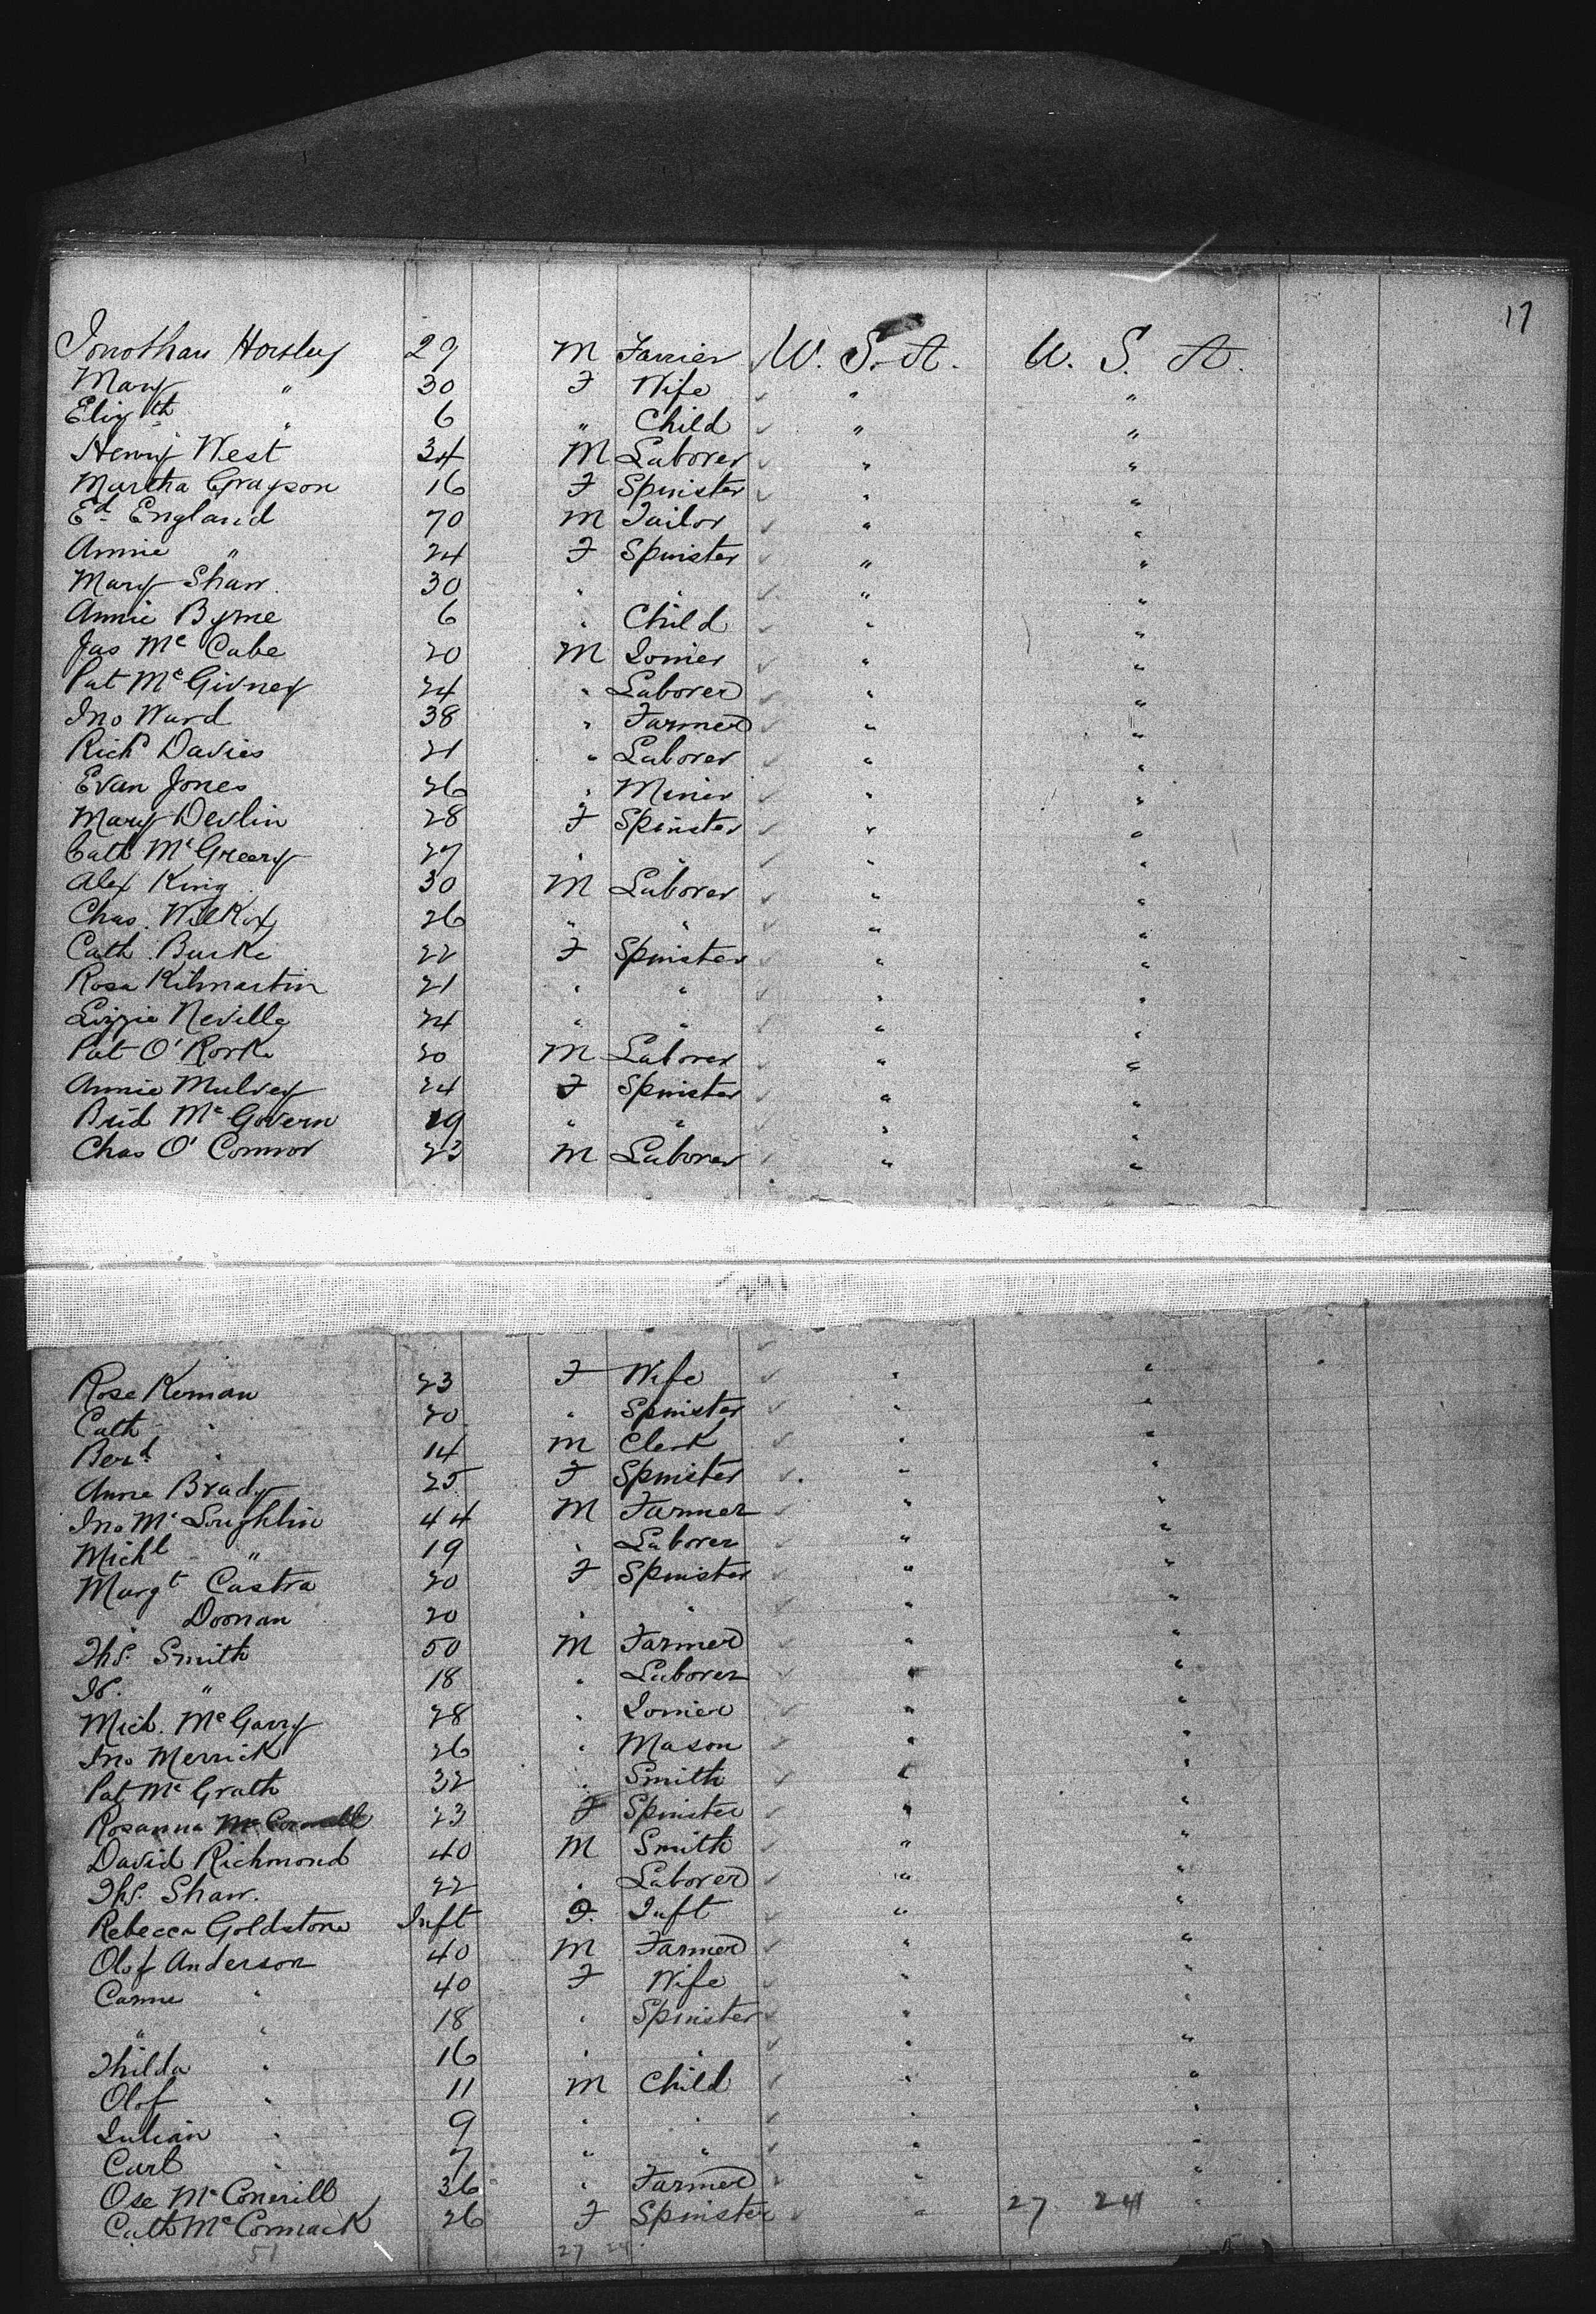 17
Jonothan Horsley 29 M Farrier U. S. A. U. S. A.
Mary " 30 F Wife " "
Elizth " 6 " Child " "
Henry West 34 M Laborer " "
Martha Grayson 16 F Spinster " "
Ed England 70 M Tailor " "
Annie " 24 F Spinster " "
Mary Shaw 30 " " " "
Annie Byrne 6 " Child " "
Jas Mc Cabe 20 M Joiner " "
Pat McGivney 24 " Laborer " "
Jno Ward 38 " Farmer " "
Richd Davies 21 " Laborer " "
Evan Jones 26 " Miner " "
Mary Devlin 28 F Spinster " "
Cath McGreery 27 " " " "
Alex King 30 M Laborer " "
Chas. Wilkox 26 " " " "
Cath Burke 22 F Spinster " "
Rosa Kilmartin 21 " " " "
Lizzie Neville 24 " " " "
Pat O'Rorke 20 M Laborer " "
Annie Mulvey 24 F Spinster " "
Brid McGovern 19 " " " "
Chas O'Connor 23 M Laborer " "
Rose Kernan 23 F Wife " "
Cath " 20 " Spinster " "
Berd " 14 M Clerk " "
Anne Brady 25 F Spinster " "
Jno McLoughlin 44 M Farmer " "
Michl " 19 " Laborer " "
Margt Castra 20 F Spinster " "
" Doonan 20 " " " "
Ths. Smith 50 M Farmer " "
Js. " 18 " Laborer " "
Mich. McGarry 28 " Joiner " "
Jno Merrick 26 " Mason " "
Pat McGrath 32 " Smith " "
Rosanna 23 F Spinster " "
David Richmond 40 M Smith " "
Ths. Shaw. 22 " Laborer " "
Rebecca Goldstone Inft F. Inft " "
Olof Anderson 40 M Farmer " "
Canne " 40 F Wife " "
" " 18 " Spinster " "
Thilda " 16 " " " "
Olof " 11 M Child " "
Julian " 9 " " " "
Carl " 7 " " " "
Ose McConerill 36 " Farmer " "
Cath McCormack 26 F Spinster " 27 24 "
51 27 24